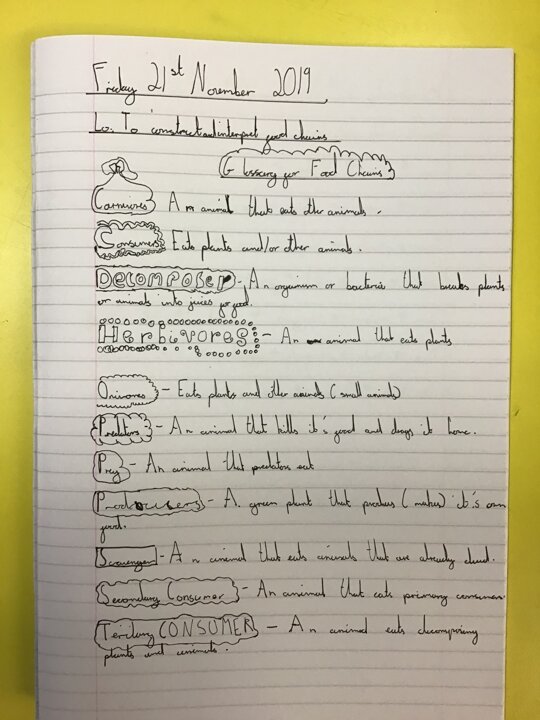 Friday 21st November 2019
Lo. To construct and interpret food chains
Glossary for Food Chains
Carnivores An animal that eats other animals.
Consumers Eats plants and/or other animals.
Decomposer - An organism or bacteria that breaks plants
or animals into juices for food.
Herbivores - An animal that eats plants
Onivores - Eats plants and other animals (small animals)
Predators - An animal that kills it's food and drags it home.
Prey - An animal that predators eat
Producers - A green plant that produces (makes) it's own
food.
Scavenger - An animal that eats animals that are already dead.
Secondary Consumer - An animal that eats primary consumers.
Teritary CONSUMER - An animal eats decomposing
plants and animals.